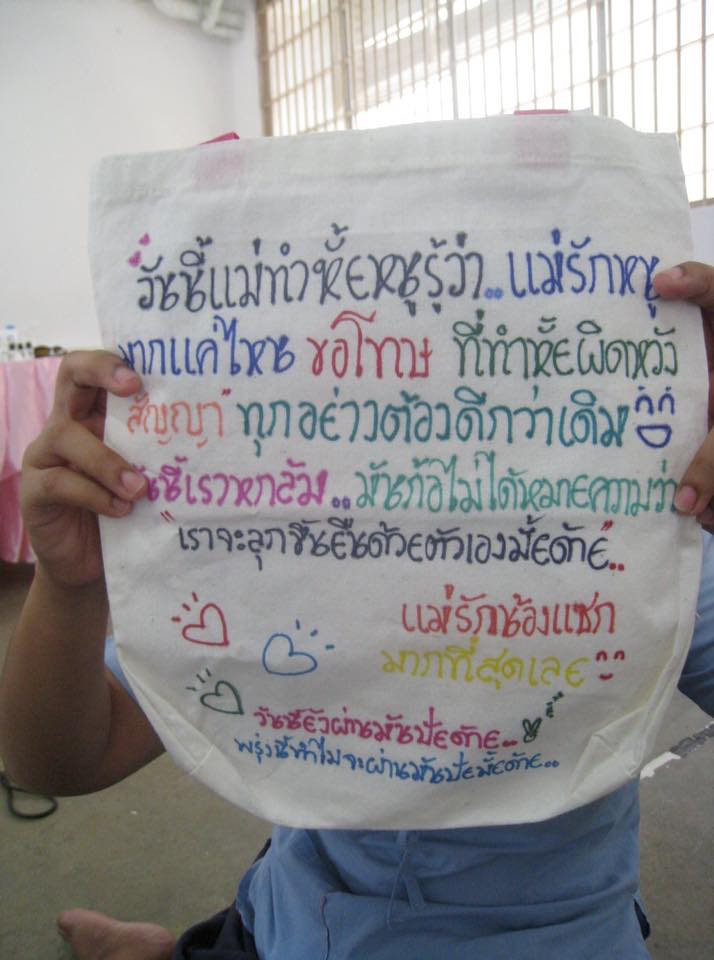 วันนี้แม่ทำหั้ยหนูรู้ว่า.. แม่รักหนู
มากแค่ไหน ขอโทษ ที่ทำหั้ยผิดหวัง
สัญญา" ทุกอย่างต้องดีกว่าเดิม
วันนี้เราหกล้ม.. มันก้อไม่ได้หมายความว่า
"เราจะลุกขึ้นยืนด้วยตัวเองมั้ยด้าย"..
แม่รักน้องแซก
มากที่สุดเลย
วันนี้ยังผ่านมันปัยด้าย..
พรุ่งนี้ทำไมจะผ่านมันปัยมั้ยด้าย..